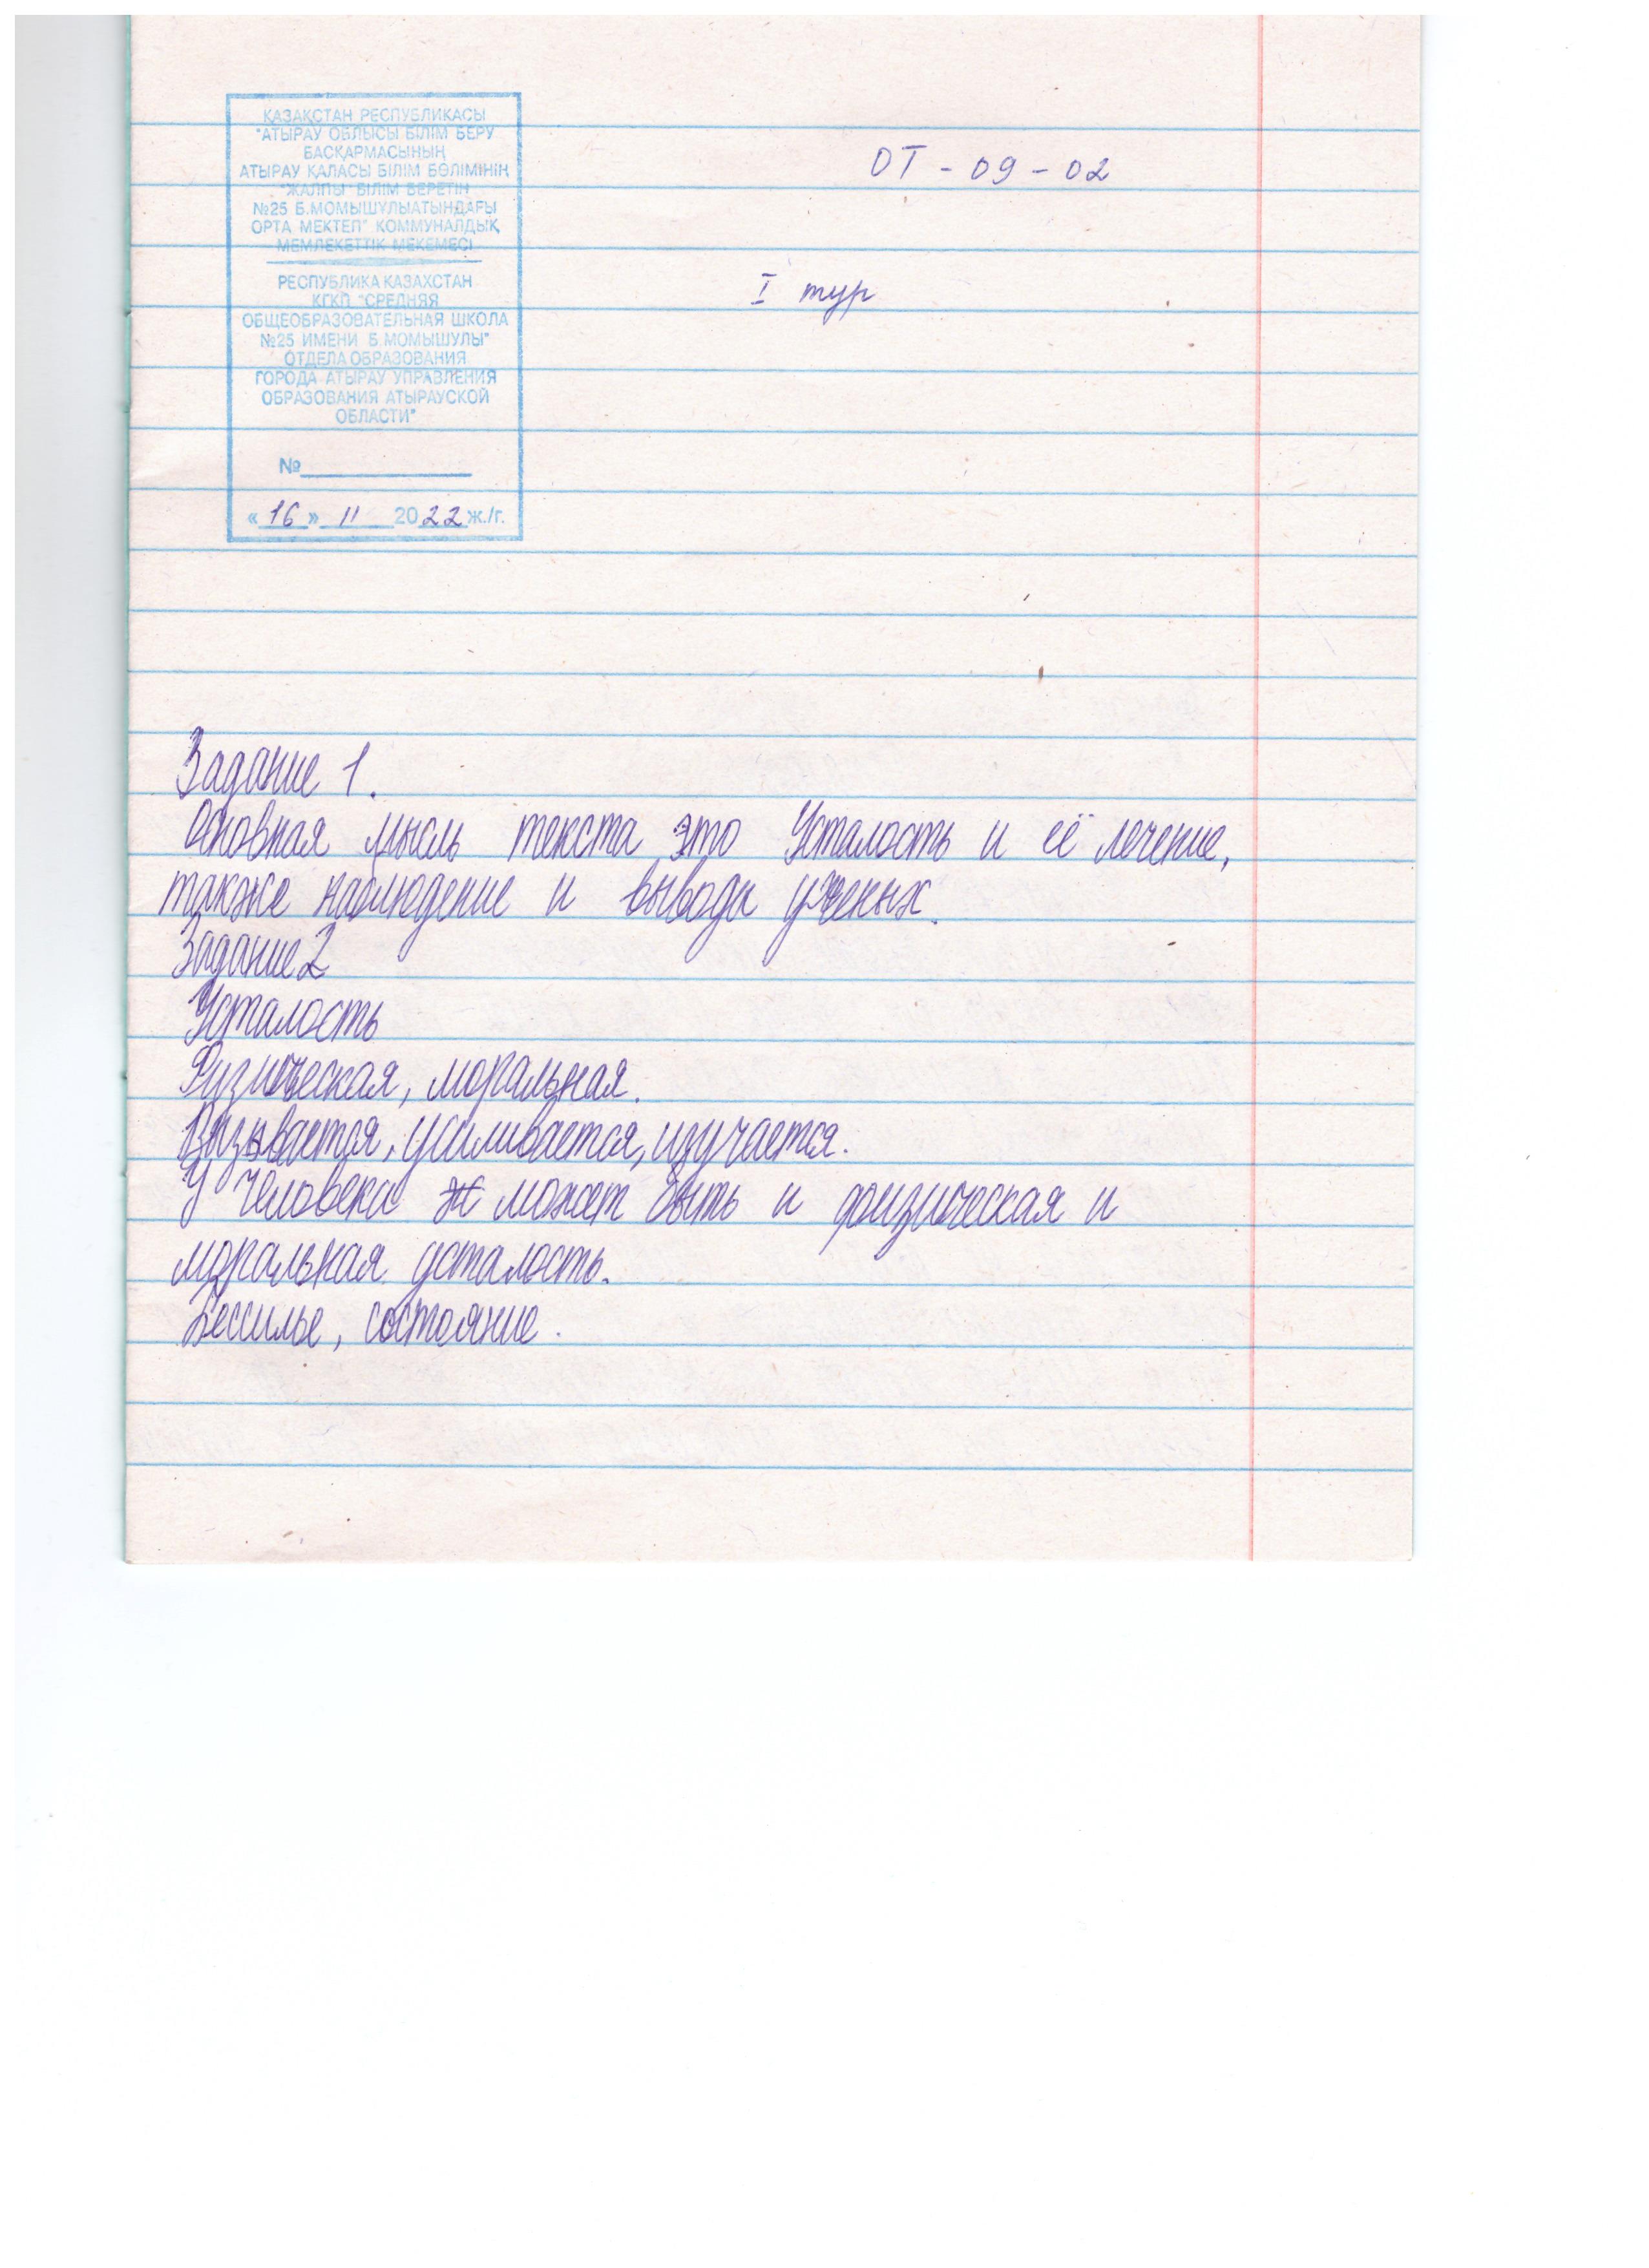 ҚАЗАҚСТАН РЕСПУБЛИКАСЫ
"АТЫРАУ ОБЛЫСЫ БІЛІМ БЕРУ
БАСҚАРМАСЫНЫҢ
АТЫРАУ ҚАЛАСЫ БІЛІМ БӨЛІМІНІҢ
"ЖАЛПЫ БІЛІМ БЕРЕТІН
№25 Б.МОМЫШҰЛЫАТЫНДАҒЫ
ОРТА МЕКТЕП" КОММУНАЛДЫҚ
МЕМЛЕКЕТТІК МЕКЕМЕСІ
РЕСПУБЛИКА КАЗАХСТАН
КГКП "СРЕДНЯЯ
ОБЩЕОБРАЗОВАТЕЛЬНАЯ ШКОЛА
№25 ИМЕНИ Б.МОМЫШУЛЫ"
ОТДЕЛА ОБРАЗОВАНИЯ
ГОРОДА АТЫРАУ УПРАВЛЕНИЯ
ОБРАЗОВАНИЯ АТЫРАУСКОЙ
ОБЛАСТИ"
№
«16» 11 2022 ж./г.
ОТ - 09 - 02
I тур
Задание 1.
Основная мысль текста это Усталость и её лечение,
также наблюдение и выводы ученых.
Задание 2
Усталость
Физическая, моральная.
Вызывается, усиливается, изучается.
У человека может быть и физическая и
моральная усталость.
Бессилье, состояние.